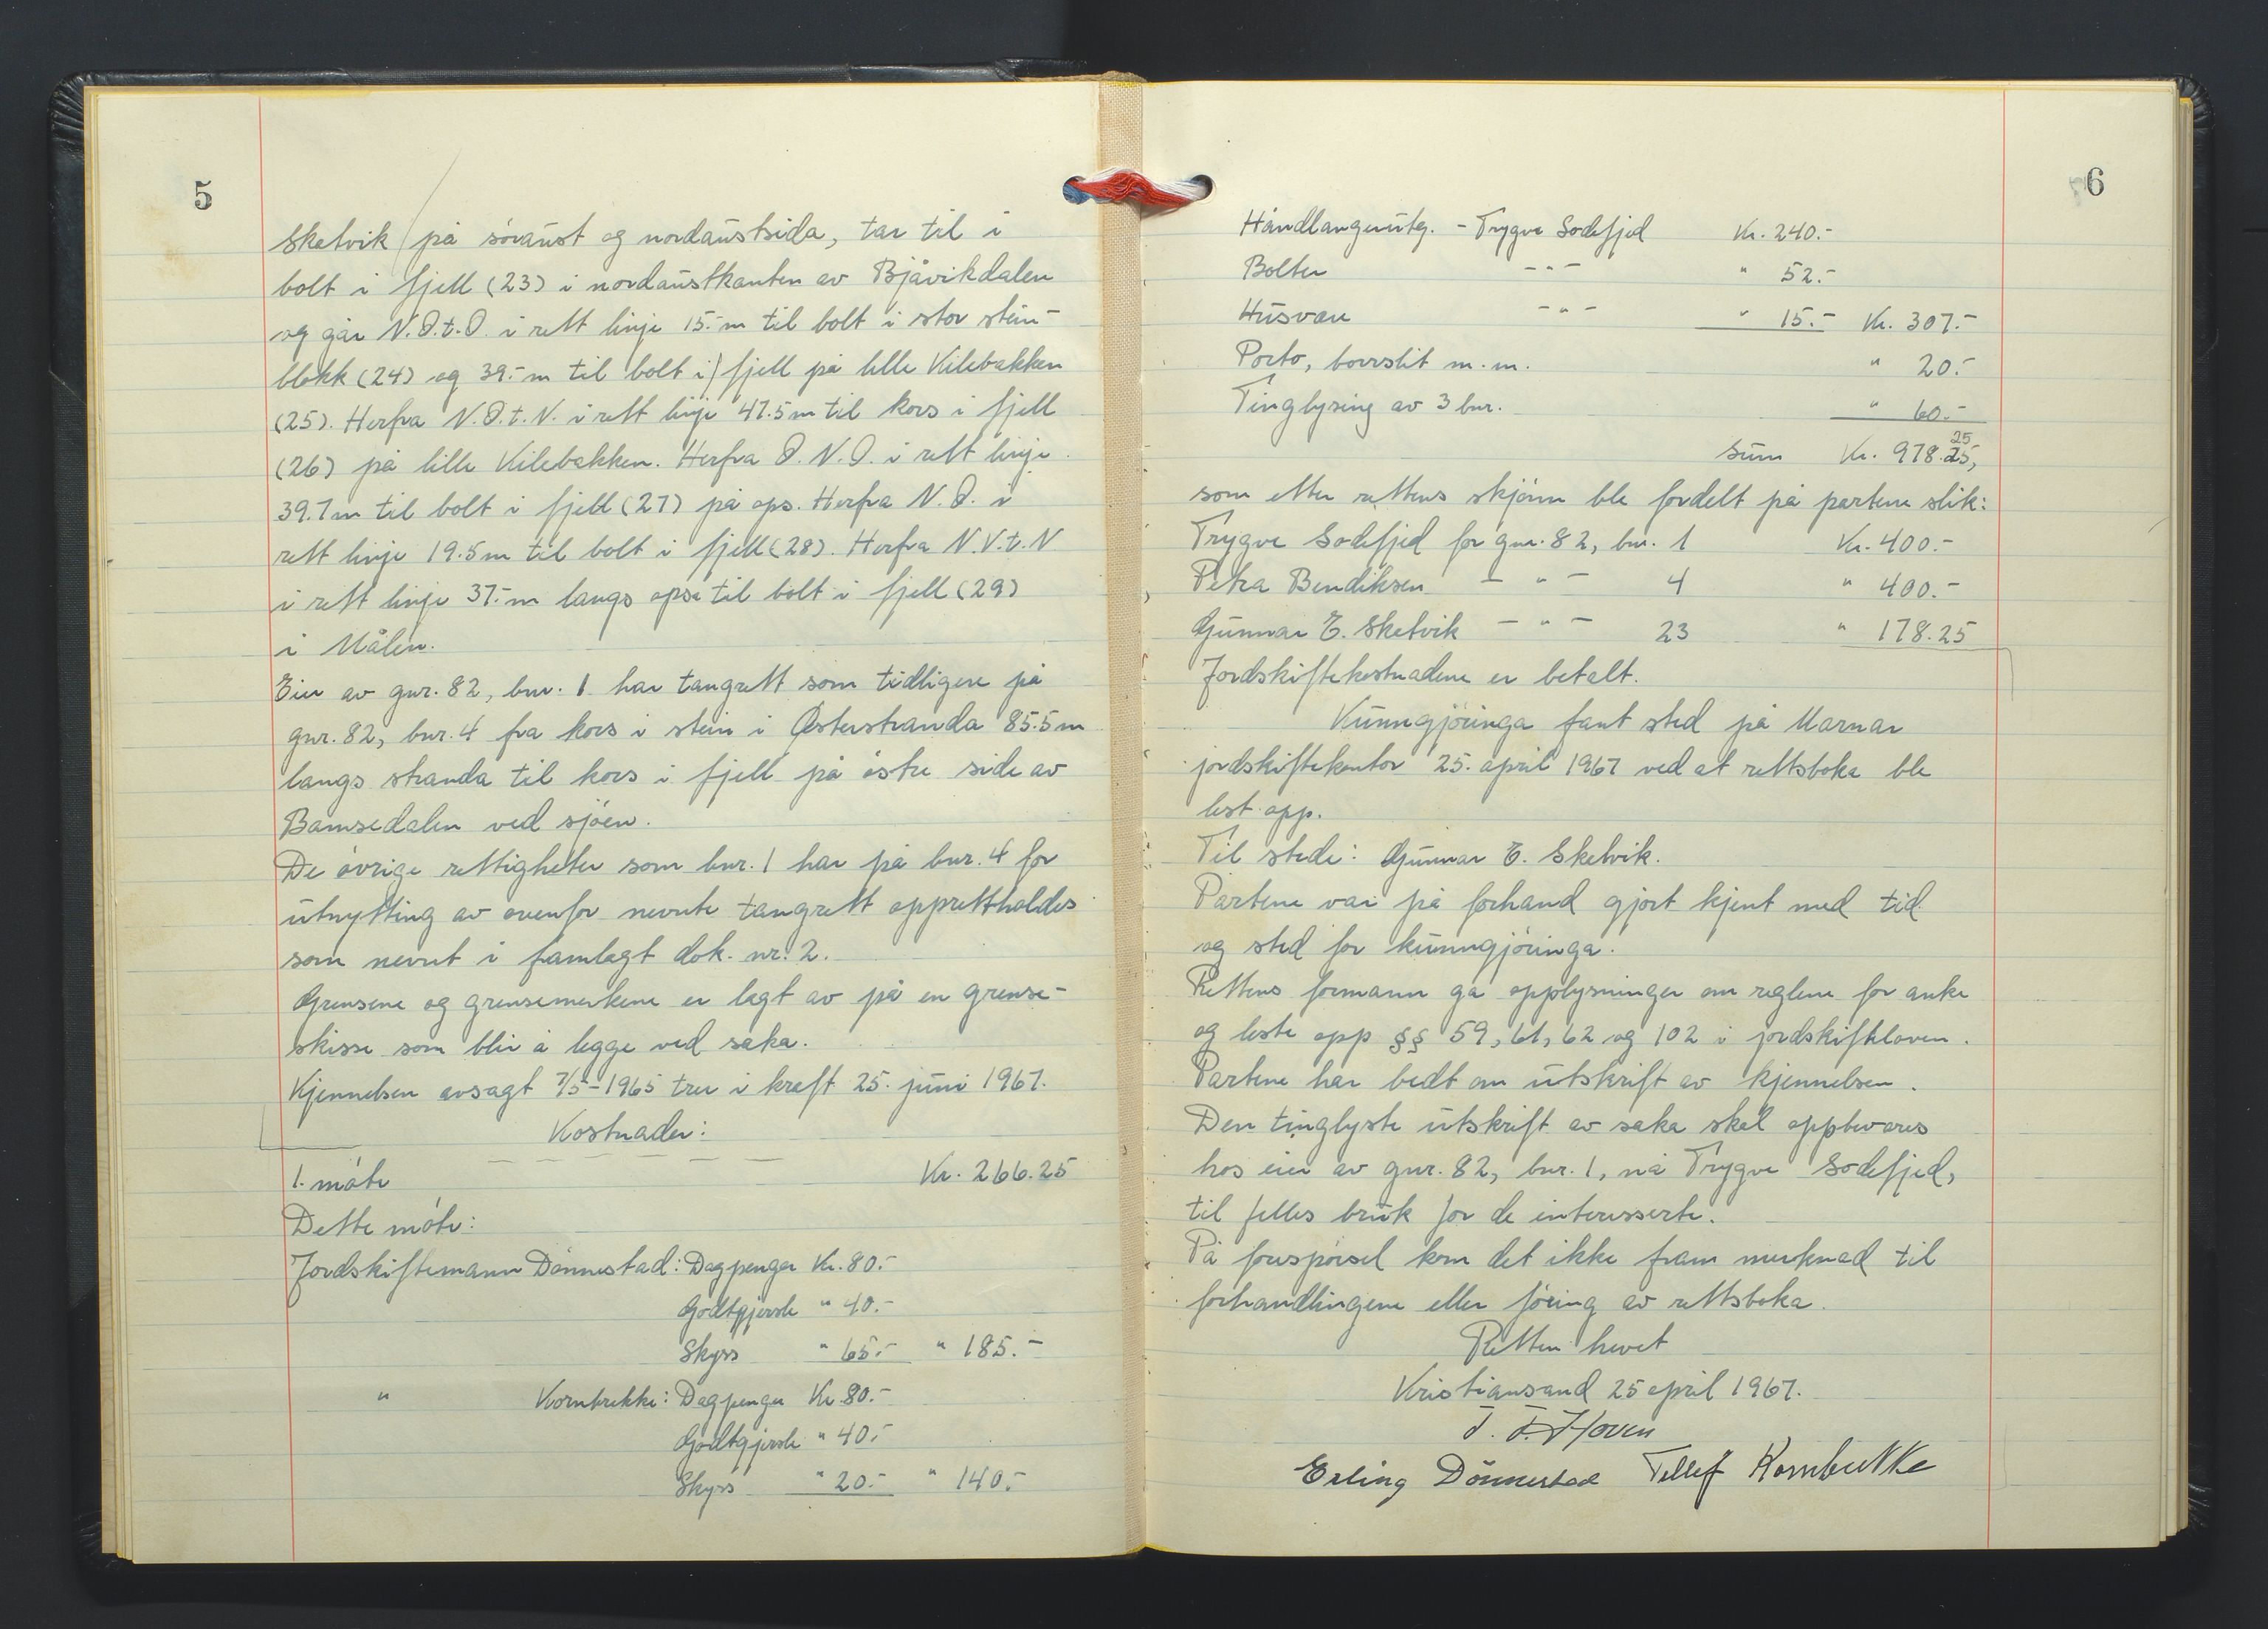 5
Sketvik på söraust og nordaustsida, tar til i
bolt i fjell (23) i nordaustkanten av Bjåvikdalen
og går N.Ø.t.Ø. i rett linje 15.- m til bolt i stor stein-
blokk (24) og 39.- m til bolt i fjell på lille Kilebakken
(25). Herfra N.Ø.t.N. i rett linje 47.5 m til kors i fjell
(26) på lille Kilebakken. Herfra Ø.N.Ø. i rett linje
39.7 m til bolt i fjell (27) på ops. Herfra N.Ø. i
rett linje 19.5 m til bolt i fjell (28). Herfra N.V.t.N
i rett linje 37.- m langs opsa til bolt i fjell (29)
i Målen.
Eier av gnr. 82, bnr. 1 har tangrett som tidligere på
gnr. 82, bnr. 4 fra kors i stein i Østerstranda 85.5 m
langs stranda til kors i fjell på östre side av
Bamsedalen ved sjöen.
De övrige rettigheter som bnr. 1 har på bnr. 4 for
utnytting av ovenfor nevnte tangrett opprettholdes
som nevnt i framlagt dok. nr. 2.
Grensene og grensemerkene er lagt av på en grense-
skisse som blir å legge ved saka.
Kjennelsen avsagt 7/5-1965 trer i kraft 25. juni 1967.
Kostnader:
1. möte Kr. 266.25
Dette möte:
Jordskiftemann Dönnestad: Dagpenger Kr. 80.-
Godtgjersle " 40.-
Skyss " 65.- " 185.-
" Kornbrekke: Dagpenger Kr. 80.-
Godtgjersle " 40.-
Skyss " 20.- " 140.-
6
Håndlangerutg. - Trygve Sodefjed Kr. 240.-
Bolter - " - " 52.-
Husvære - " - " 15.- Kr. 307.-
Porto, borrslit m.m. " 20.-
Tinglysing av 3 bnr. " 60.-
Sum Kr. 978.25,
som etter rettens skjönn ble fordelt på partene slik:
Trygve Sodefjed for gnr. 82, bnr. 1 Kr. 400.-
Petra Bendiksen - " - 4 " 400.-
Gunnar E. Sketvik - " - 23 " 178.25
Jordskiftekostnadene er betalt.
Kunngjöringa fant sted på Marnar
jordskiftekontor 25. april 1967 ved at rettsboka ble
lest opp.
Til stede: Gunnar E. Sketvik.
Partene var på forhand gjort kjent med tid
og sted for kunngjöringa.
Rettens formann ga opplysninger om reglene for anke
og leste opp §§ 59, 61, 62 og 102 i jordskifteloven.
Partene har bedt om utskrift av kjennelsen.
Den tinglyste utskrift av saka skal oppbevares
hos eier av gnr. 82, bnr. 1, nå Trygve Sodefjed,
til felles bruk for de interesserte.
På forespörsel kom det ikke fram merknad til
forhandlingene eller föring av rettsboka.
Retten hevet
Kristiansand 25 april 1967.
T. F. Hoven
Erling Dönnestad Tellef Kornbrekke